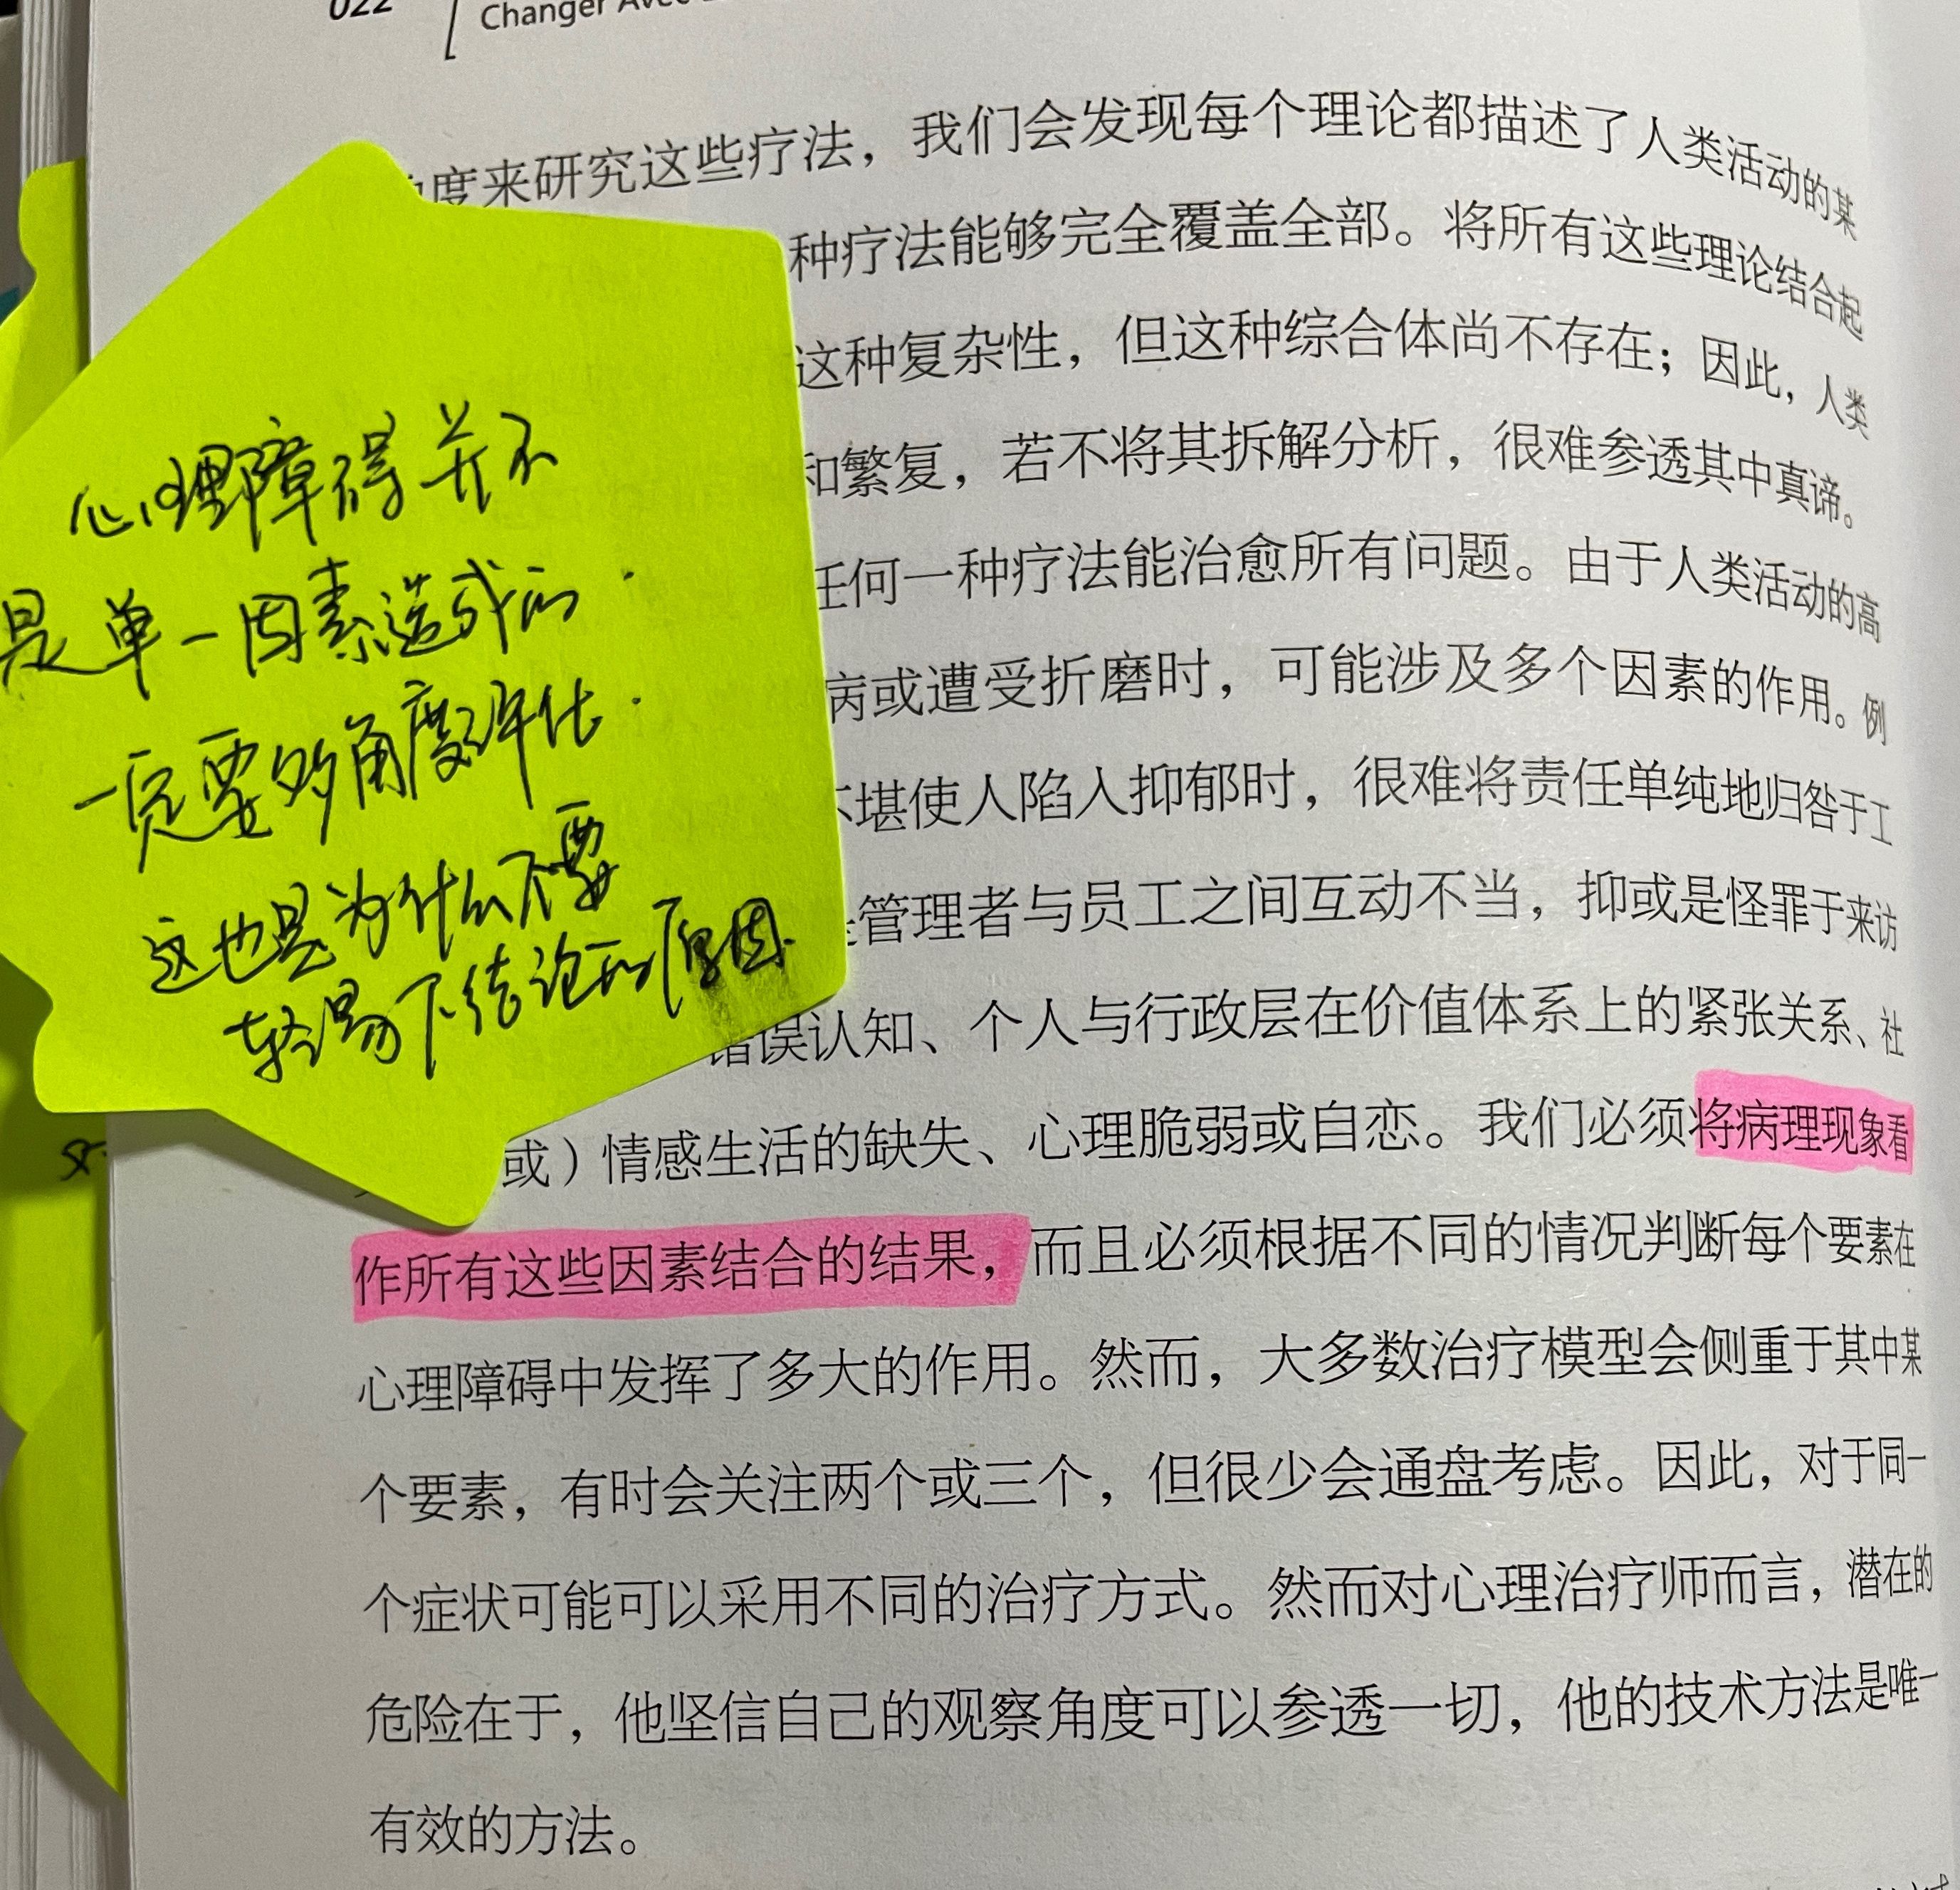 022
Changer Avec
度来研究这些疗法，我们会发现每个理论都描述了人类活动的某
种疗法能够完全覆盖全部。将所有这些理论结合起
这种复杂性，但这种综合体尚不存在；因此，人类
和繁复，若不将其拆解分析，很难参透其中真谛。
任何一种疗法能治愈所有问题。由于人类活动的高
病或遭受折磨时，可能涉及多个因素的作用。例
不堪使人陷入抑郁时，很难将责任单纯地归咎于工
管理者与员工之间互动不当，抑或是怪罪于来访
错误认知、个人与行政层在价值体系上的紧张关系、社
或）情感生活的缺失、心理脆弱或自恋。我们必须将病理现象看
作所有这些因素结合的结果，而且必须根据不同的情况判断每个要素在
心理障碍中发挥了多大的作用。然而，大多数治疗模型会侧重于其中某
个要素，有时会关注两个或三个，但很少会通盘考虑。因此，对于同一
个症状可能可以采用不同的治疗方式。然而对心理治疗师而言，潜在的
危险在于，他坚信自己的观察角度可以参透一切，他的技术方法是唯一
有效的方法。
心理障碍并不
是单一因素造成的.
一定要多角度评估.
这也是为什么不要
轻易下结论和原因.